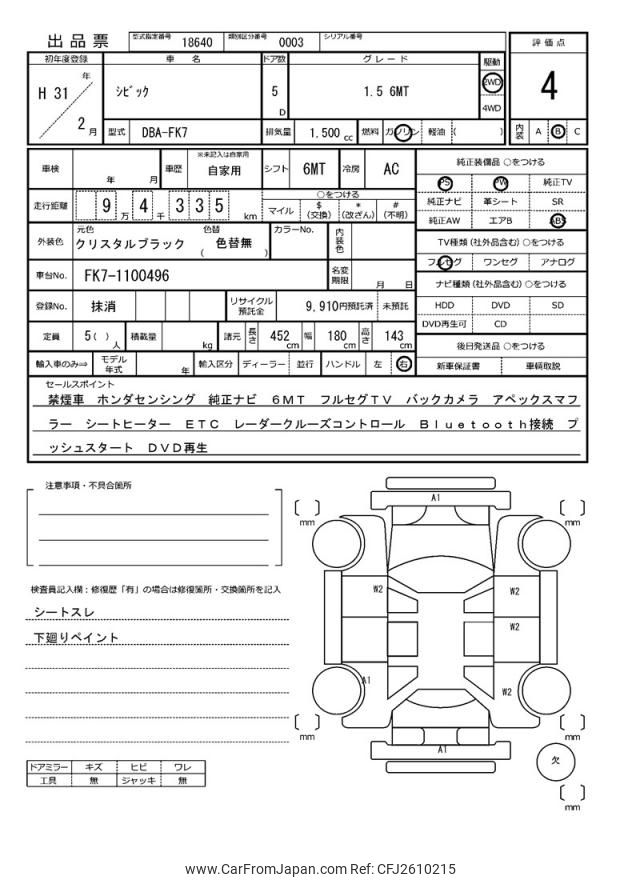 出品票 型式指定番号 18640 類別区分番号 0003 シリアル番号
評価点
4
初年度登録 車名 ドア数 グレード 駆動
H 31 年 2 月 シビック 5 D 1.5 6MT 2WD 4WD
型式 DBA-FK7 排気量 1.500 cc 燃料 ガソリン 軽油 ( ) 内装 A B C
車検 年 月 車歴 ※未記入は自家用 自家用 シフト 6MT 冷房 AC
走行距離 9 万 4 千 3 3 5 km ○をつける
マイル $(交換) *(改ざん) #(不明)
外装色 元色 クリスタルブラック 色替 ( 色替無 ) カラーNo. 内装色
車台No. FK7-1100496 名変期限 月 日
登録No. 抹消 リサイクル預託金 9,910円預託済 未預託
定員 5( ) 人 積載量 kg 諸元 長さ 452 cm 幅 180 cm 高さ 143 cm
輸入車のみ⇒ モデル年式 年 輸入区分 ディーラー 並行 ハンドル 左 右
純正装備品 ○をつける
PS PW 純正TV
純正ナビ 革シート SR
純正AW エアB ABS
TV種類(社外品含む) ○をつける
フルセグ ワンセグ アナログ
ナビ種類(社外品含む) ○をつける
HDD DVD SD
DVD再生可 CD
後日発送品 ○をつける
新車保証書 車輌取説
セールスポイント
禁煙車 ホンダセンシング 純正ナビ 6MT フルセグTV バックカメラ アペックスマフ
ラー シートヒーター ETC レーダークルーズコントロール Bluetooth接続 プ
ッシュスタート DVD再生
注意事項・不具合箇所
検査員記入欄：修復歴「有」の場合は修復箇所・交換箇所を記入
シートスレ
下廻りペイント
ドアミラー キズ ヒビ ワレ
工具 無 ジャッキ 無
A1
[ ] mm
[ ] mm
W2
W2
W2
A1
W2
[ ] mm
[ ] mm
A1
欠
[ ] mm
www.CarFromJapan.com Ref: CFJ2610215